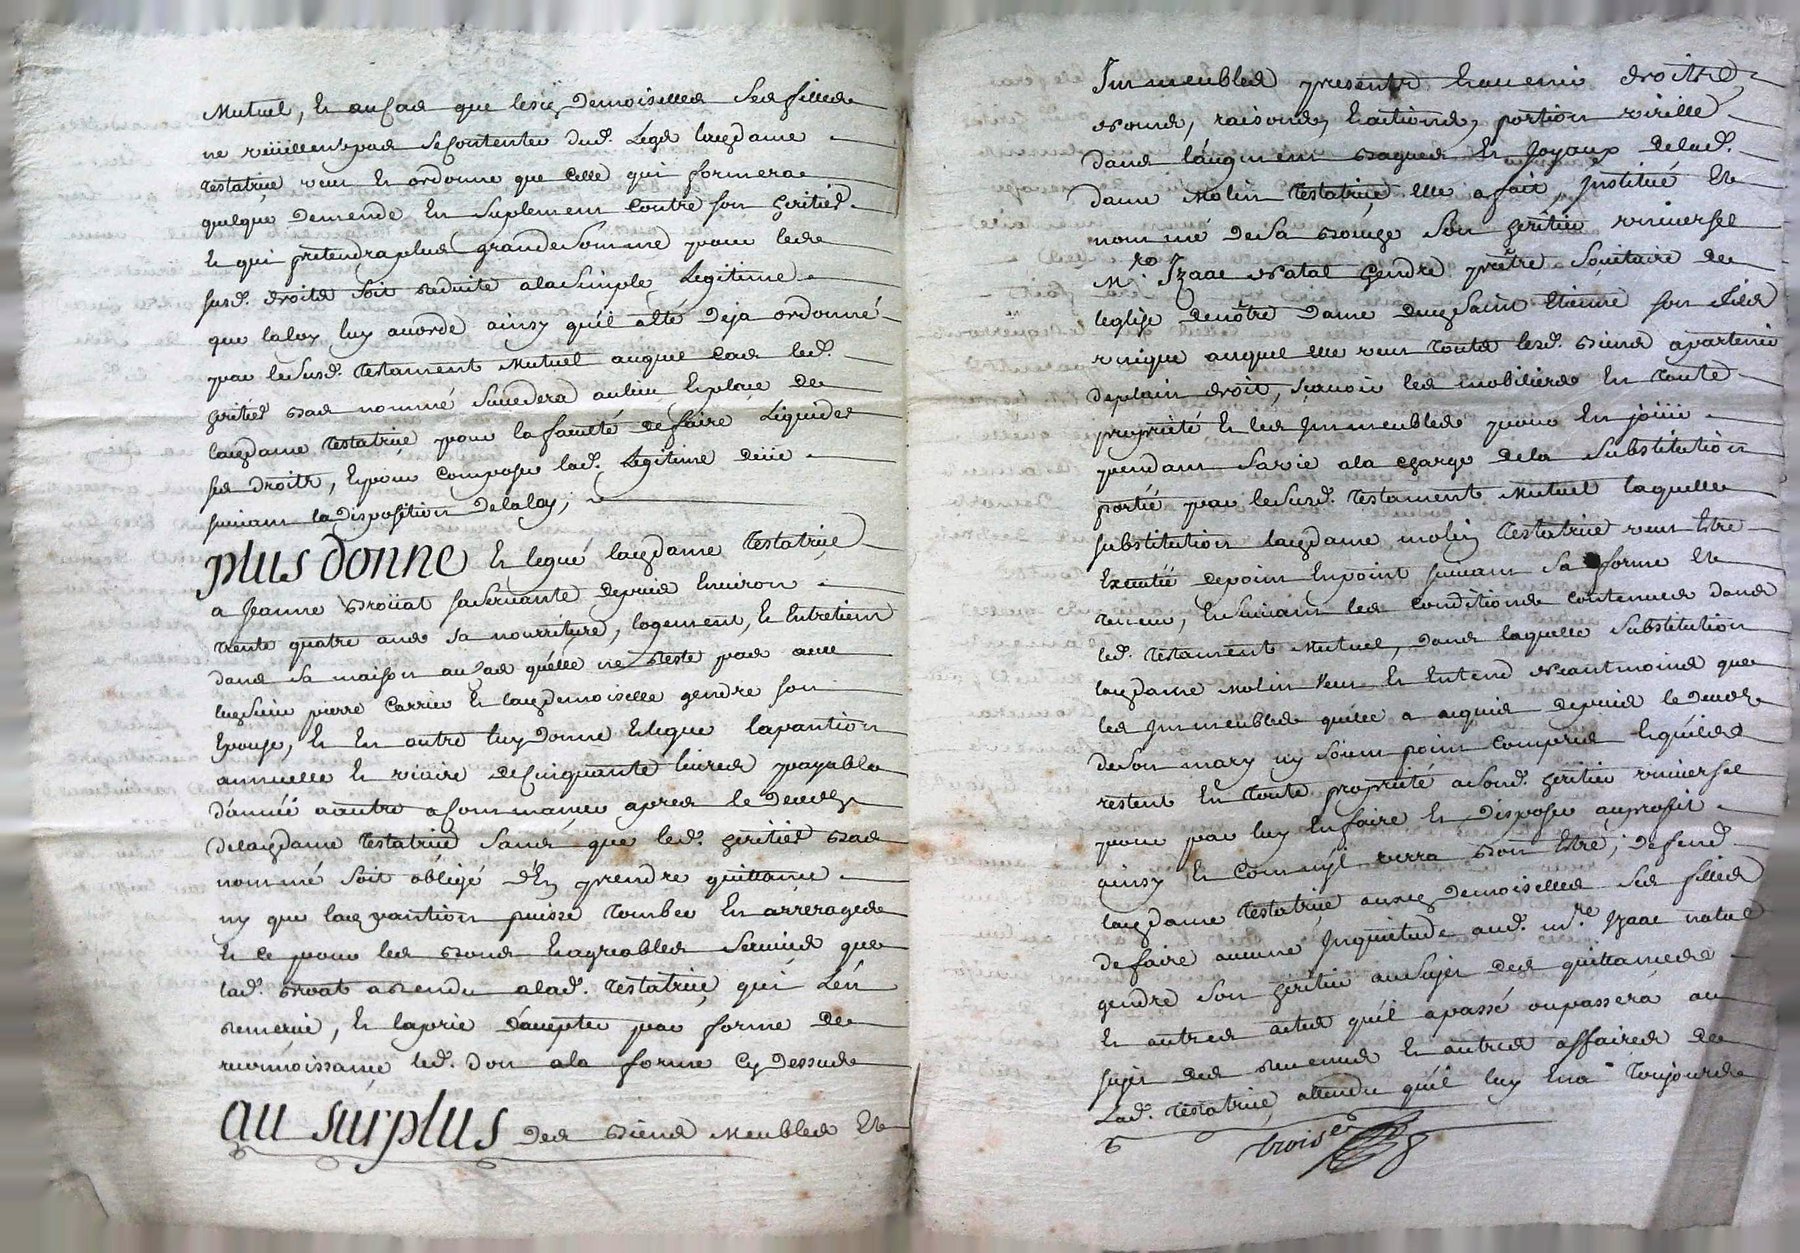 Mutuel, et au cas que lesd demoiselles ses filles
ne veuillent pas se contenter dud. Legs lad dame
testatrice veut et ordonne que celle qui formera
quelque demende en suplement contre son heritier
et qui pretendra plus grande somme pour lesd
susd. droits soit reduite a la simple Legitime
que la loy luy acorde ainsy qu'il a êté deja ordonné
par le susd. testament Mutuel auquel cas led.
heritier bas nommé succedera au lieu et place de
lad dame testatrice pour la faculté de faire Liquider
ses droits, et pour composer lad. Legitime deüe
suivant la disposition de la loy;
plus donne et legue lad dame testatrice
a Jeanne Broüat sa servante depuis environ
trente quatre ans sa nourriture, logement, et entretien
dans sa maison au cas qu'elle ne reste pas avec
led sieur pierre Carrier et lad demoiselle gendre son
epouse, et en outre luy donne et legue la pantion
annuelle et viaire de cinquante livres payable
d'année a autre a commancer apres le deces
de lad dame testatrice sans que led. heritier bas
nommé soit obligé d'en prendre quittance
ny que lad pantion puisse tomber en arrerages
et ce pour les bons et agreables services que
lad. Broat a rendu a lad. testatrice, qui l'en
remercie, et la prie d'accepter par forme de
reconnoissance led. don a la forme cy dessus
au surplus des biens Meubles et
Immeubles presents et avenir droits,
noms, raisons, et actions, portion virille
dans l'augment bagues et Joyaux de lad.
dame Molin testatrice elle a fait, Institué et
nommé de sa bouche son heritier universel
Mre Izaac Natal Gendre prêtre Societaire de
l'eglise de nôtre dame dud saint Etienne son fils
unique auquel elle veut touts lesd. biens apartenir
de plain droit, sçavoir les mobiliers en toute
proprieté et les Immeubles pour en joüir
pendant sa vie a la charge de la substitution
portée par le susd. testament Mutuel laquelle
substitution lad dame molin testatrice veut être
executée de point en point suivant sa forme et
teneur, en suivant les conditions contenues dans
led. testament Mutuel, dans laquelle substitution
lad dame Molin veut et entend neantmoins que
les Immeubles qu'elle a acquis depuis le deces
de son mary ny soient point compris et qu'ils
restent en toute proprieté a sond. heritier universel
pour par luy en faire et disposer au proffit
ainsy et comm'il verra bon être; defend
lad dame testatrice auxd demoiselles ses filles
de faire aucune Inquietude aud. mre. Izaac natal
gendre son heritier au sujet des quittances
et autres actes qu'il a passé ou passera au
sujet des revenus et autres affaires de
Lad. testatrice, attendu qu'il luy en a toujours
6 trois.e